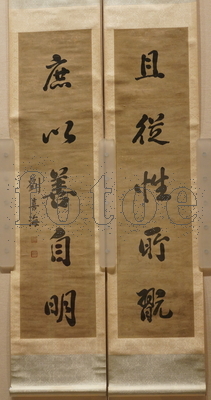 且從性所翫
庶以善自明
劉喜海
fotoe